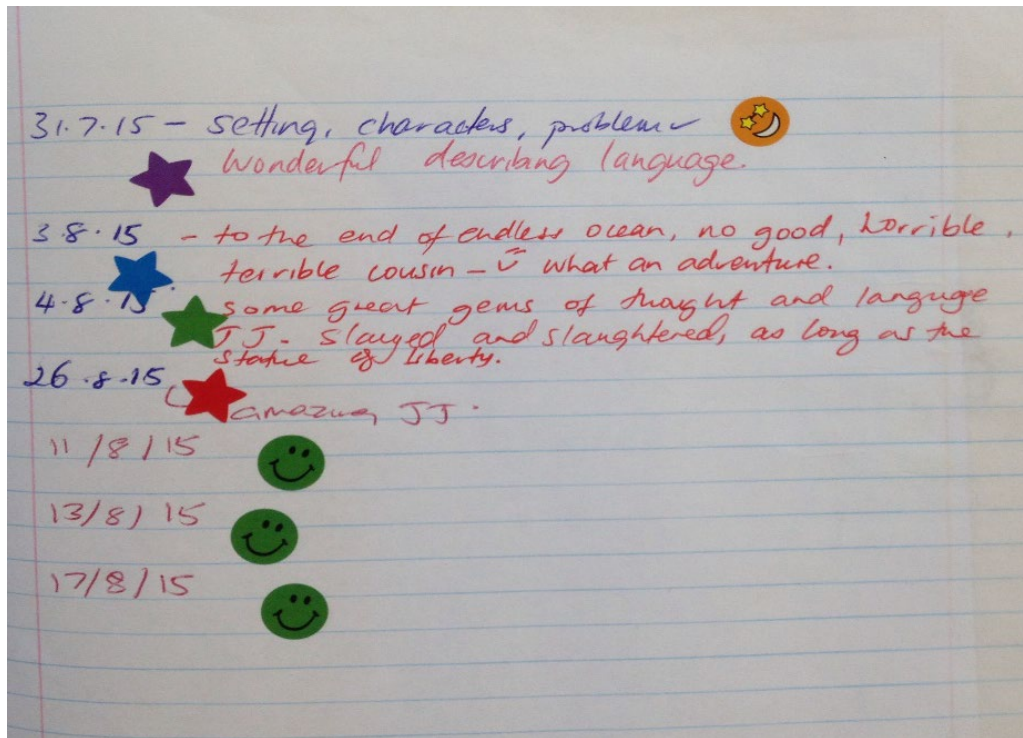 31.7.15 – setting, characters, problem ✓
Wonderful describing language.
3.8.15 - to the end of endless ocean, no good, horrible,
terrible cousin – what an adventure.
4.8.15 some great gems of thought and languge
JJ. Slayed and slaughtered, as long as the
statue of Liberty.
26.8.15
amazing JJ.
11/8/15
13/8/15
17/8/15